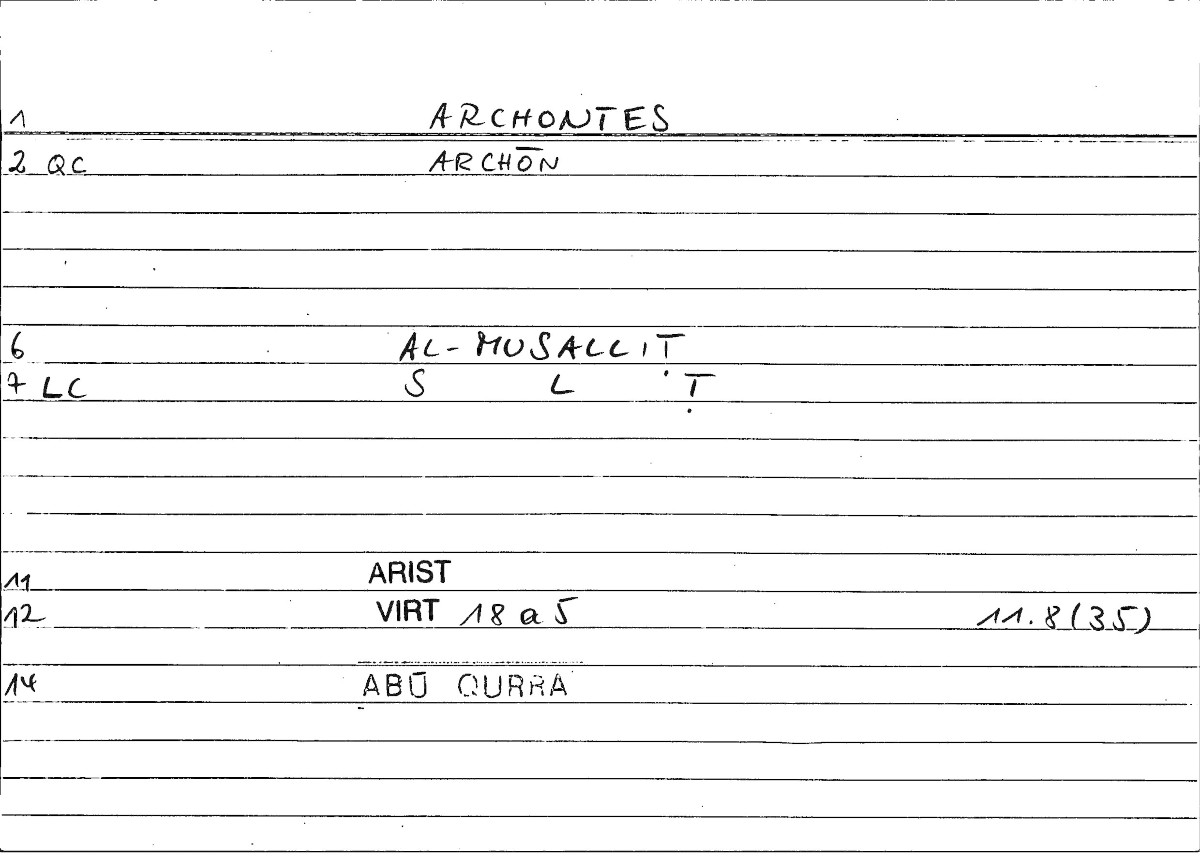 1 ARCHONTES
2 QC ARCHŌN
6 AL-MUSALLIṬ
7 LC S L Ṭ
11 ARIST
12 VIRT 18 a 5 11.8(35)
14 ABŪ QURRA